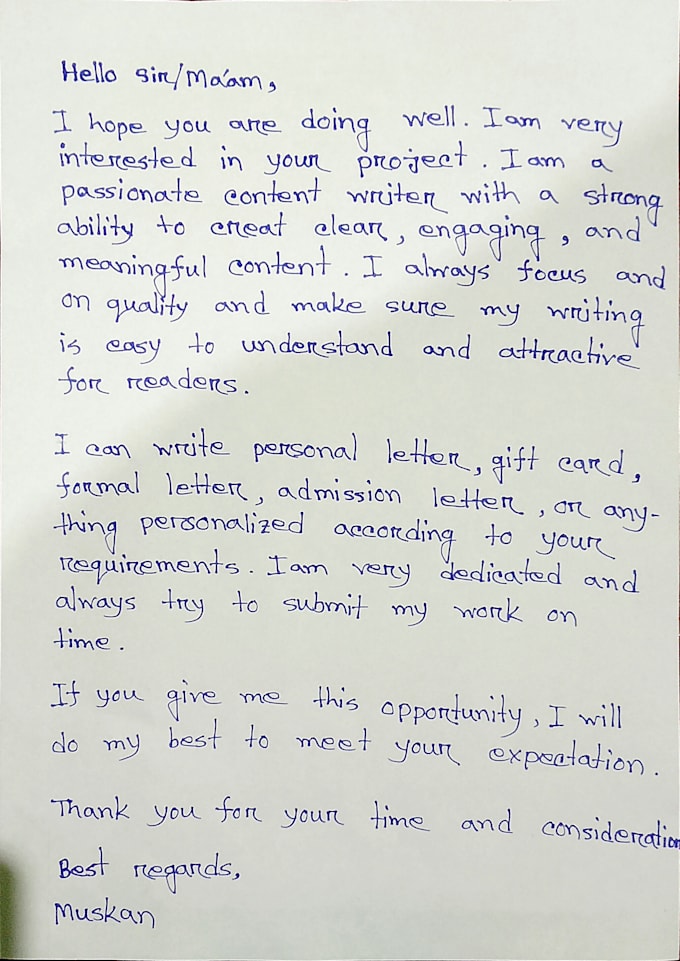 Hello Sir/Ma'am,
I hope you are doing well. I am very
interested in your project. I am a
passionate content writer with a strong
ability to creat clear, engaging, and
meaningful content. I always focus and
on quality and make sure my writing
is easy to understand and attractive
for readers.
I can write personal letter, gift card,
formal letter, admission letter, or any-
thing personalized according to your
requirements. I am very dedicated and
always try to submit my work on
time.
If you give me this opportunity, I will
do my best to meet your expectation.
Thank you for your time and consideration
Best regards,
Muskan